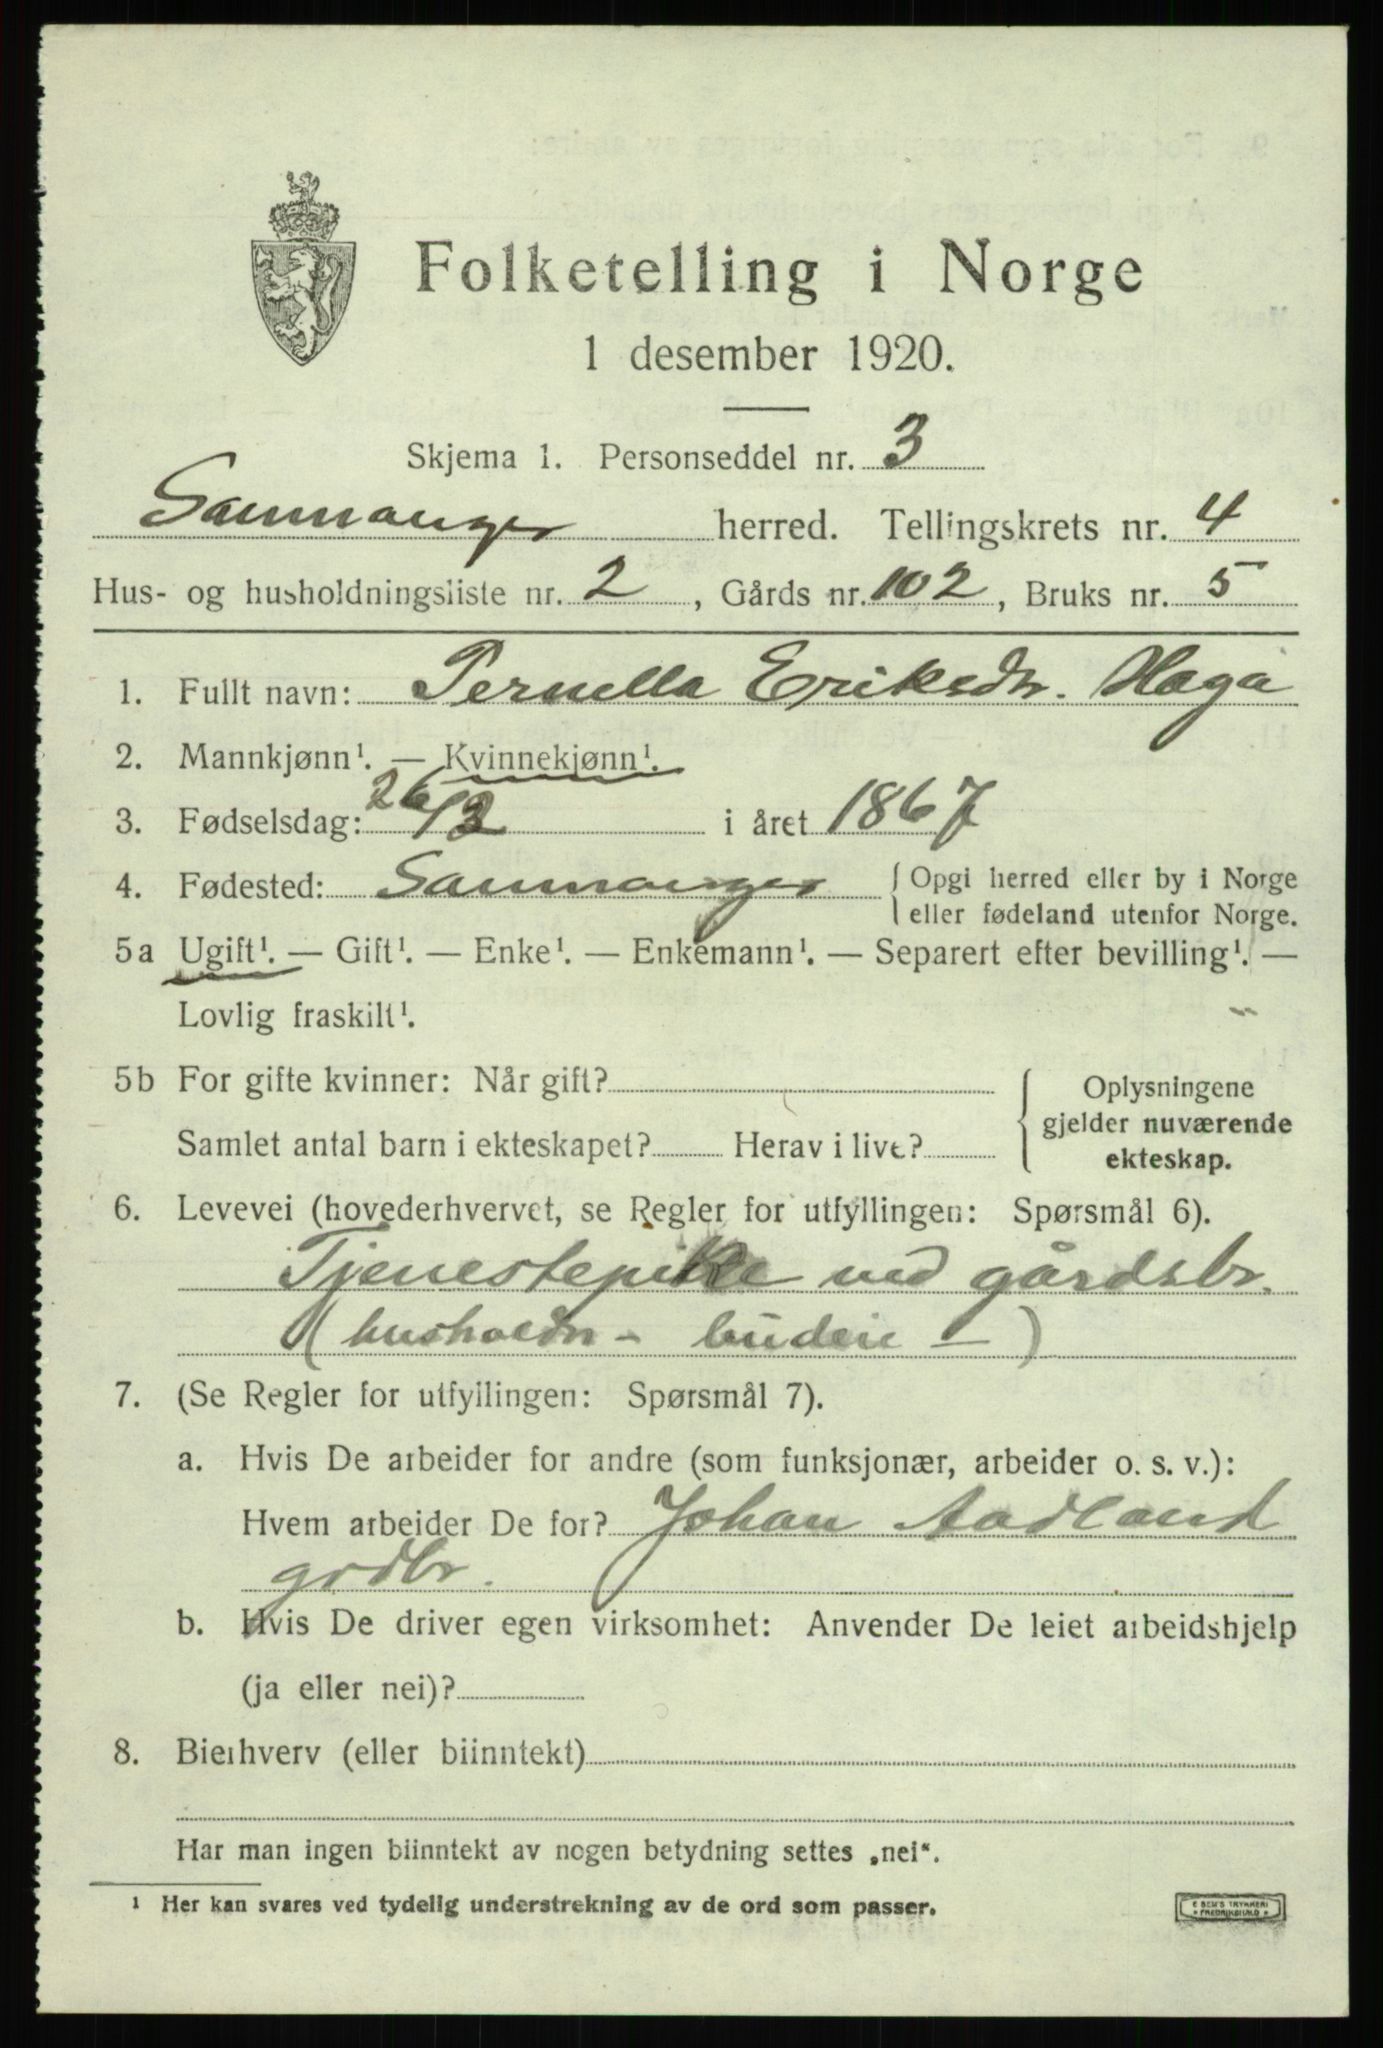 Folketelling i Norge
1 desember 1920.
Skjema 1. Personseddel nr. 3
Samnanger herred. Tellingskrets nr. 4
Hus- og husholdningsliste nr. 2, Gårds nr. 102, Bruks nr. 5
1. Fullt navn: Pernella Eriksdtr. Haga
2. Mannkjønn¹. — Kvinnekjønn¹.
3. Fødselsdag: 26/12 i året 1867
4. Fødested: Samnanger { Opgi herred eller by i Norge
eller fødeland utenfor Norge.
5a Ugift¹. — Gift¹. — Enke¹. — Enkemann¹. — Separert efter bevilling¹. —
Lovlig fraskilt¹.
5b For gifte kvinner: Når gift?
Samlet antal barn i ekteskapet? Herav i live?
{ Oplysningene
gjelder nuværende
ekteskap.
6. Levevei (hovederhvervet, se Regler for utfyllingen: Spørsmål 6).
Tjenestepike ved gårdsbr.
(husholdn - budeie -)
7. (Se Regler for utfyllingen: Spørsmål 7).
a. Hvis De arbeider for andre (som funksjonær, arbeider o. s. v.):
Hvem arbeider De for? Johan Aadland
grdbr.
b. Hvis De driver egen virksomhet: Anvender De leiet arbeidshjelp
(ja eller nei)?
8. Bierhverv (eller biinntekt)
Har man ingen biinntekt av nogen betydning settes „nei“.
¹ Her kan svares ved tydelig understrekning av de ord som passer.